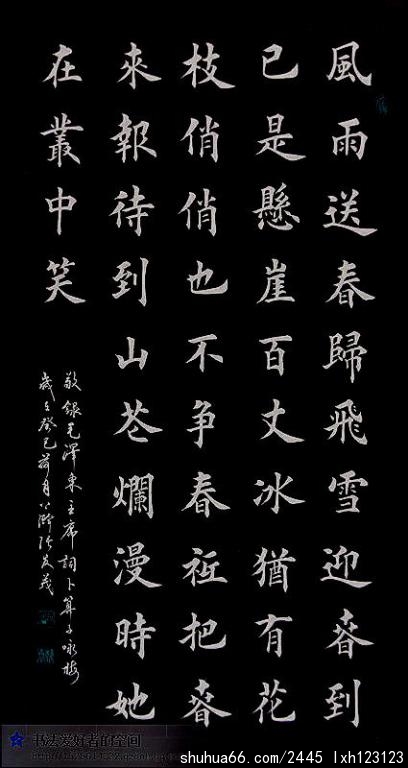 風雨送春歸飛雪迎春到
已是懸崖百丈冰猶有花
枝俏俏也不争春祗把春
來報待到山花爛漫時她
在叢中笑
敬錄毛澤東主席詞卜算子咏梅
歲次癸巳荷月
书法爱好者的空间
shuhua66.com/2445 lxh123123